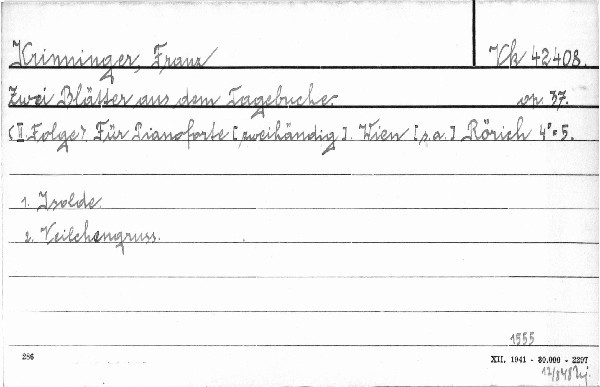 Krinninger, Franz Vk 42408.
Zwei Blätter aus dem Tagebuche. op. 37.
(II. Folge) Für Pianoforte [zweihändig]. Wien [s.a.] Rörich 4°=5.
1. Isolde.
2. Veilchengruss.
1555
286 XII. 1941 - 30.000 - 2297